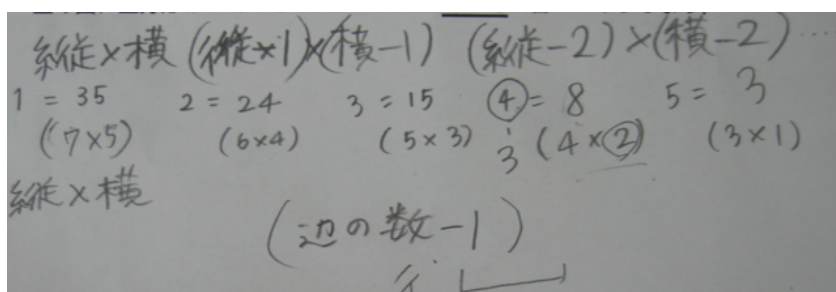 縦×横 (縦-1)×(横-1) (縦-2)×(横-2)……
1 = 35 2 = 24 3 = 15 ④ = 8 5 = 3
(7×5) (6×4) (5×3) 3 (4×②) (3×1)
縦×横
(辺の数-1)